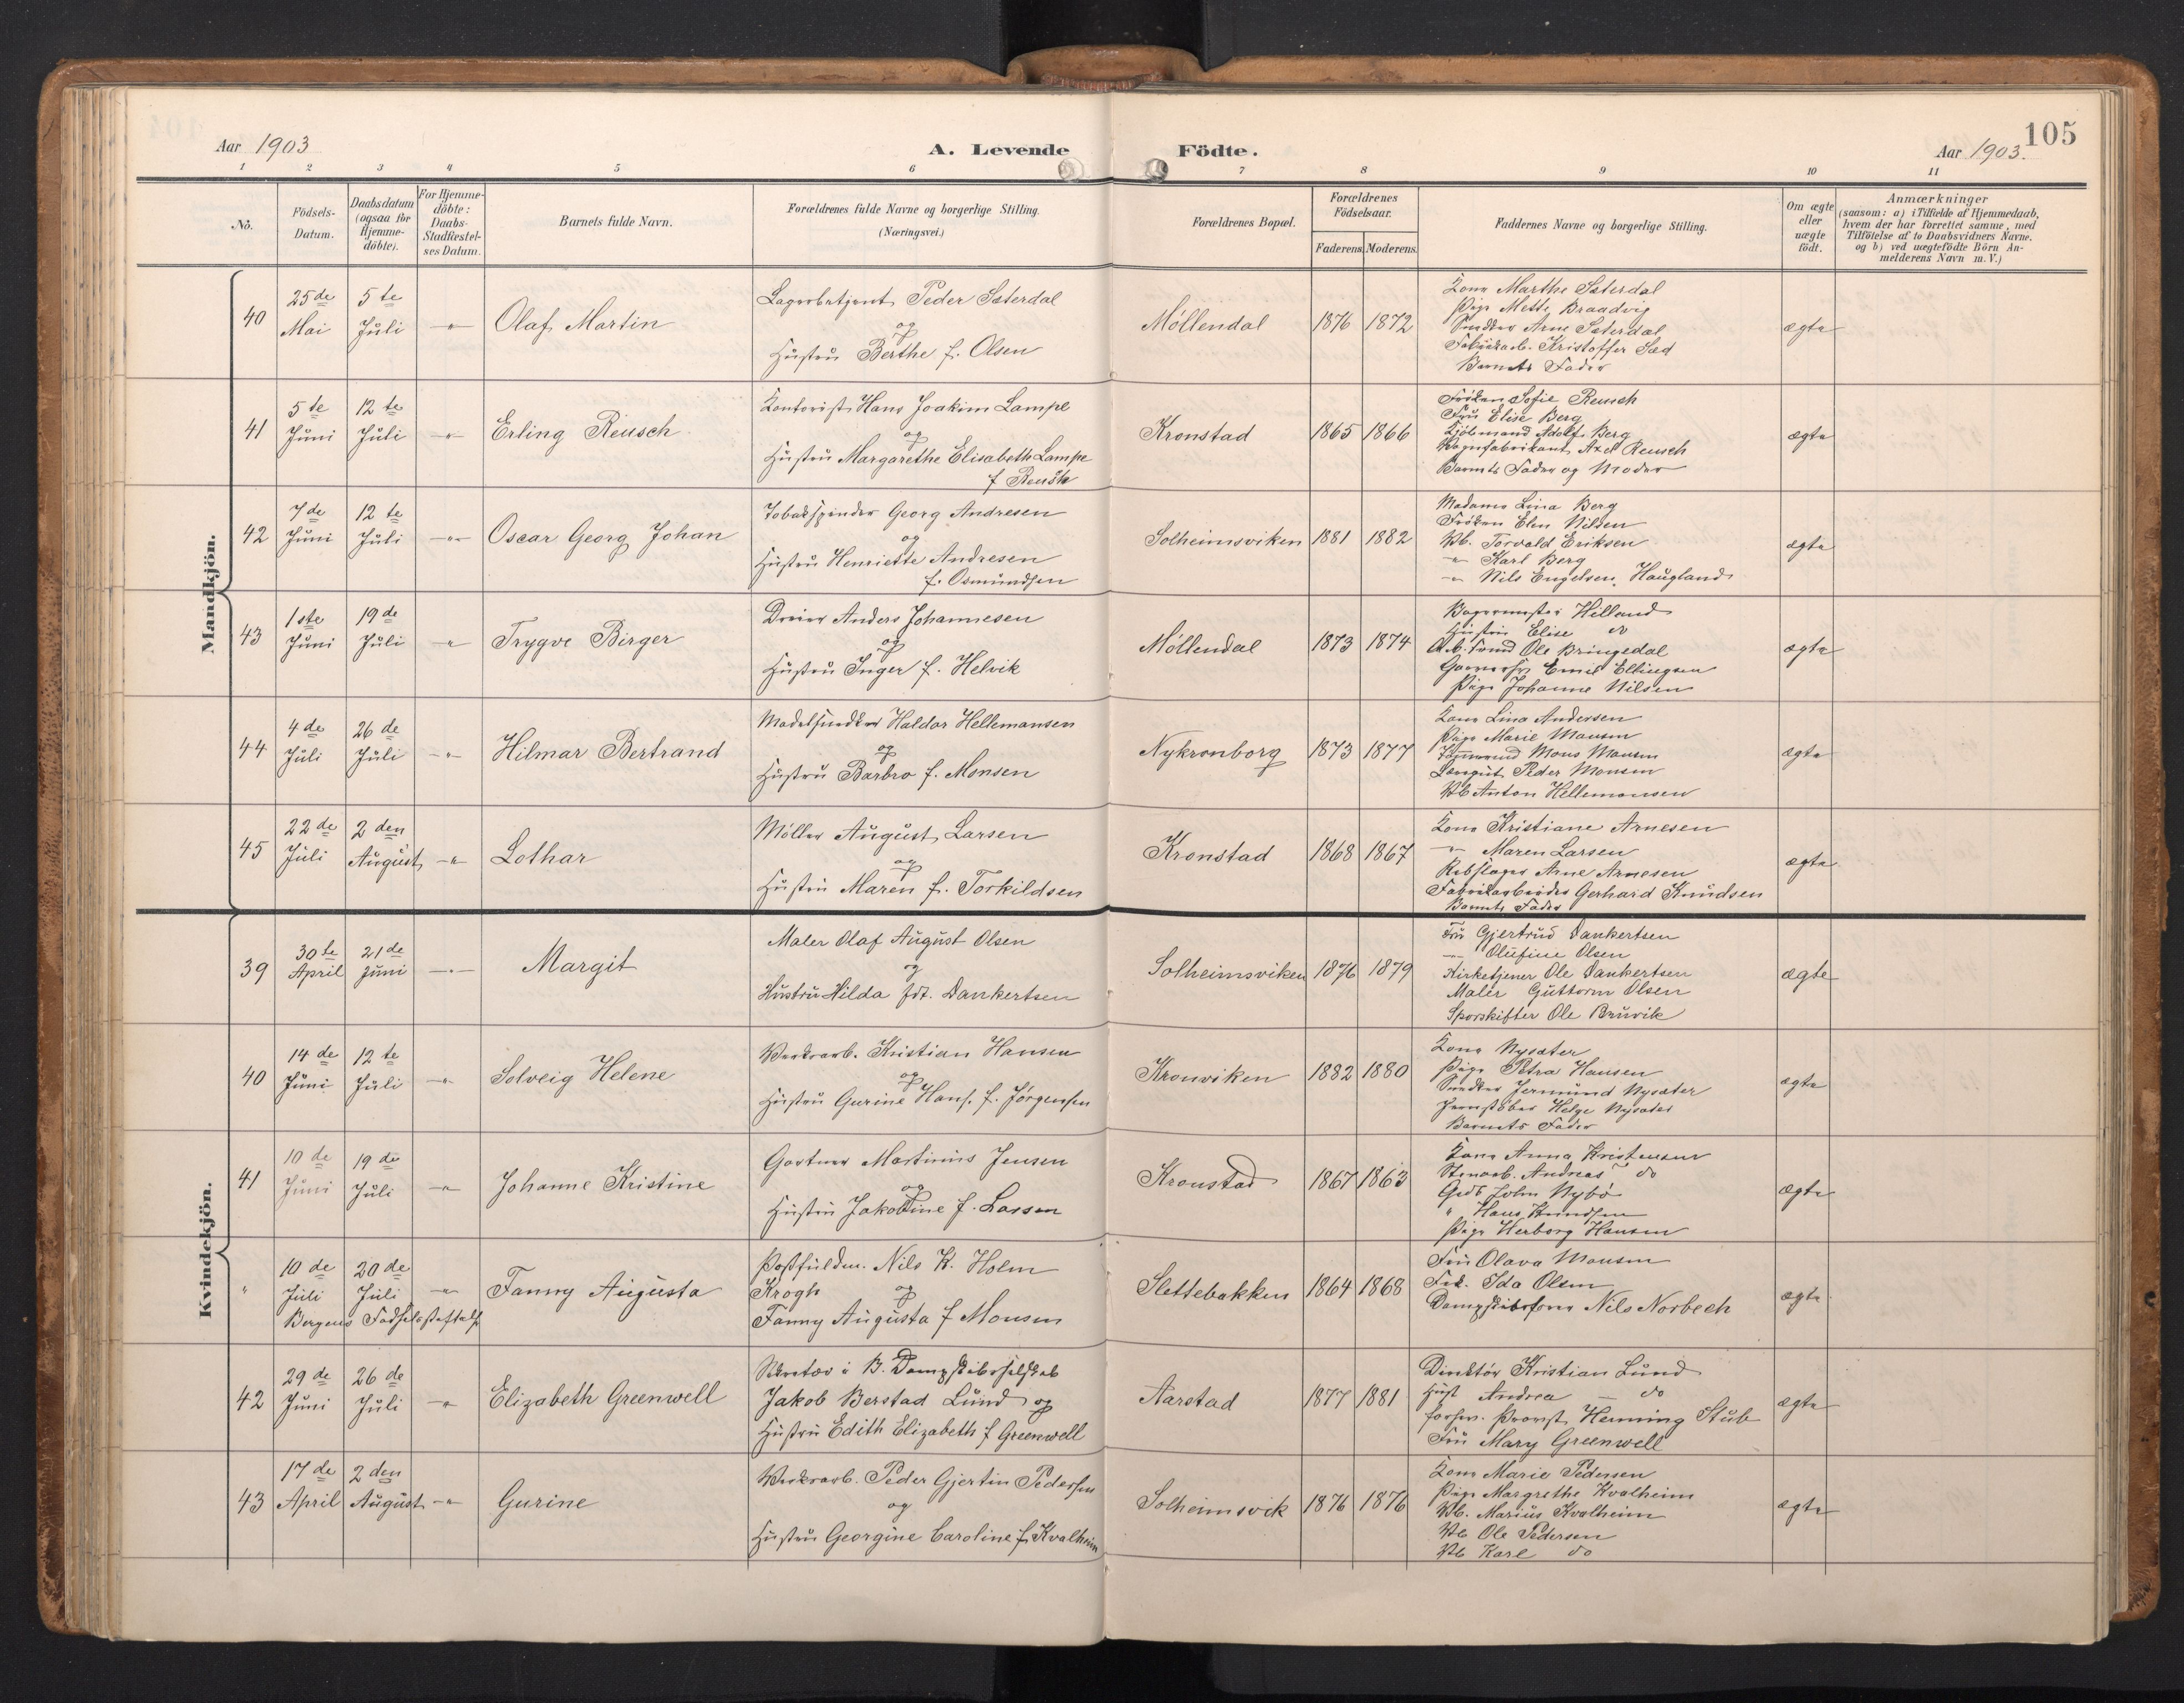 105
Aar 1903
A. Levende Födte.
Aar 1903.
1 2 3 4 5 6 7 8 9 10 11
No.
Födsels-Datum.
Daabsdatum (ogsaa for Hjemme-döbte).
For Hjemme-döbte: Daabs-Stadfæstel-ses Datum.
Barnets fulde Navn.
Forældrenes fulde Navne og borgerlige Stilling.
(Næringsvei.)
Forældrenes Bopæl.
Forældrenes Födselsaar.
Faderens. Moderens.
Faddernes Navne og borgerlige Stilling.
Om ægte eller uægte födt.
Anmærkninger
(saasom: a) i Tilfælde af Hjemmedaab,
hvem der har forrettet samme, med
Tilföielse af to Daabsvidners Navne,
og b) ved uægtefödte Börn An-
melderens Navn m. V.)
Mandkjön.
40
25de Mai
5te Juli
-"-
Olaf Martin
Lagerbetjent Peder Sæterdal
og
Hustru Berthe f. Olsen
Møllendal
1876 1872
Kone Marthe Sæterdal
Pige Mette Braadvig
Smedker Arne Sæterdal
Fabrikarb. Kristoffer Sæd
Barnets Fader
ægte
41
5te Juni
12te Juli
-"-
Erling Reusch
Kontorist Hans Joakim Lampe
og
Hustru Margarethe Elisabeth Lampe
f. Reusch
Kronstad
1865 1866
Frøken Sofie Reusch
Fru Elise Berg
Kjøbmand Adolf Berg
Vognfabrikant Axel Reusch
Barnets Fader og Moder
ægte
42
7de Juni
12te Juli
-"-
Oscar Georg Johan
Tobakspinder Georg Andresen
og
Hustru Henriette Andresen
f. Osmundsen
Solheimsviken
1881 1882
Madame Lina Berg
Frøken Elen Nilsen
Vb. Torvald Eriksen
-"- Karl Berg
-"- Nils Engelsen Haugland
ægte
43
1ste Juni
19de Juli
-"-
Trygve Birger
Dreier Anders Johannesen
og
Hustru Inger f. Helvik
Møllendal
1873 1874
Bagermester Hilland
Hustru Elise do
Ole Bringedal
Emil Ellingsen
Pige Johanne Nilsen
ægte
44
4de Juli
26de Juli
-"-
Hilmar Bertrand
Modelsnedker Haldor Hellemansen
og
Hustru Barbro f. Monsen
Nykronborg
1873 1877
Kone Lina Andersen
Pige Marie Monsen
Tømmermd Mons Monsen
Peder Monsen
Vb Anton Hellemansen
ægte
45
22de Juli
2den August
-"-
Lothar
Møller August Larsen
og
Hustru Maren f. Torkildsen
Kronstad
1868 1867
Kone Kristiane Arnesen
-"- Maren Larsen
Rebslager Arne Arnesen
Fabrikarbeider Gerhard Knudsen
Barnets Fader
ægte
Kvindekjön.
39
30te April
21de Juni
-"-
Margit
Maler Olaf August Olsen
og
Hustru Hilda fdt. Dankertsen
Solheimsviken
1876 1879
Fru Gjertrud Dankertsen
-"- Olufine Olsen
Kirketjener Ole Dankertsen
Maler Guttorm Olsen
Sporskifter Ole Bruvik
ægte
40
14de Juni
12te Juli
-"-
Solveig Helene
Værksarb. Kristian Hansen
og
Hustru Gurine Hans. f. Jørgensen
Kronviken
1882 1880
Kone Nysæter
Pige Petra Hansen
Smedker Jermund Nysæter
Jernstøber Helge Nysæter
Barnets Fader
ægte
41
10de Juni
19de Juli
-"-
Johanne Kristine
Gartner Martinius Jensen
og
Hustru Jakobine f. Larsen
Kronstad
1867 1863
Kone Anna Kristensen
Stenarb. Andreas do
Gdb John Nybø
" Hans Knudsen
Pige Herborg Hansen
ægte
"
10de Juli
20de Juli
-"-
Bergens Fødselsstiftelse
Fanny Augusta
Postfuldm. Nils K. Holm
Krogh og
Fanny Augusta f Monsen
Slettebakken
1864 1868
Fru Olava Monsen
Frk. Ida Olsen
Dampskibsfører Nils Norbech
ægte
42
29de Juni
26de Juli
-"-
Elizabeth Greenwell
Sekretær i B. Dampskibsselskab
Jakob Berstad Lund og
Hustru Edith Elizabeth f Greenwell
Aarstad
1877 1881
Direktør Kristian Lund
Hust Andrea — do
forhv. Provst Henning Stub
Fru Mary Greenwell
ægte
43
17de April
2den August
-"-
Gurine
Værksarb. Peder Gjertin Pedersen
og
Hustru Georgine Caroline f. Kvalheim
Solheimsvik
1876 1876
Kone Marie Pedersen
Pige Margrethe Kvalheim
Vb. Marius Kvalheim
Vb Ole Pedersen
Vb Karl do
ægte